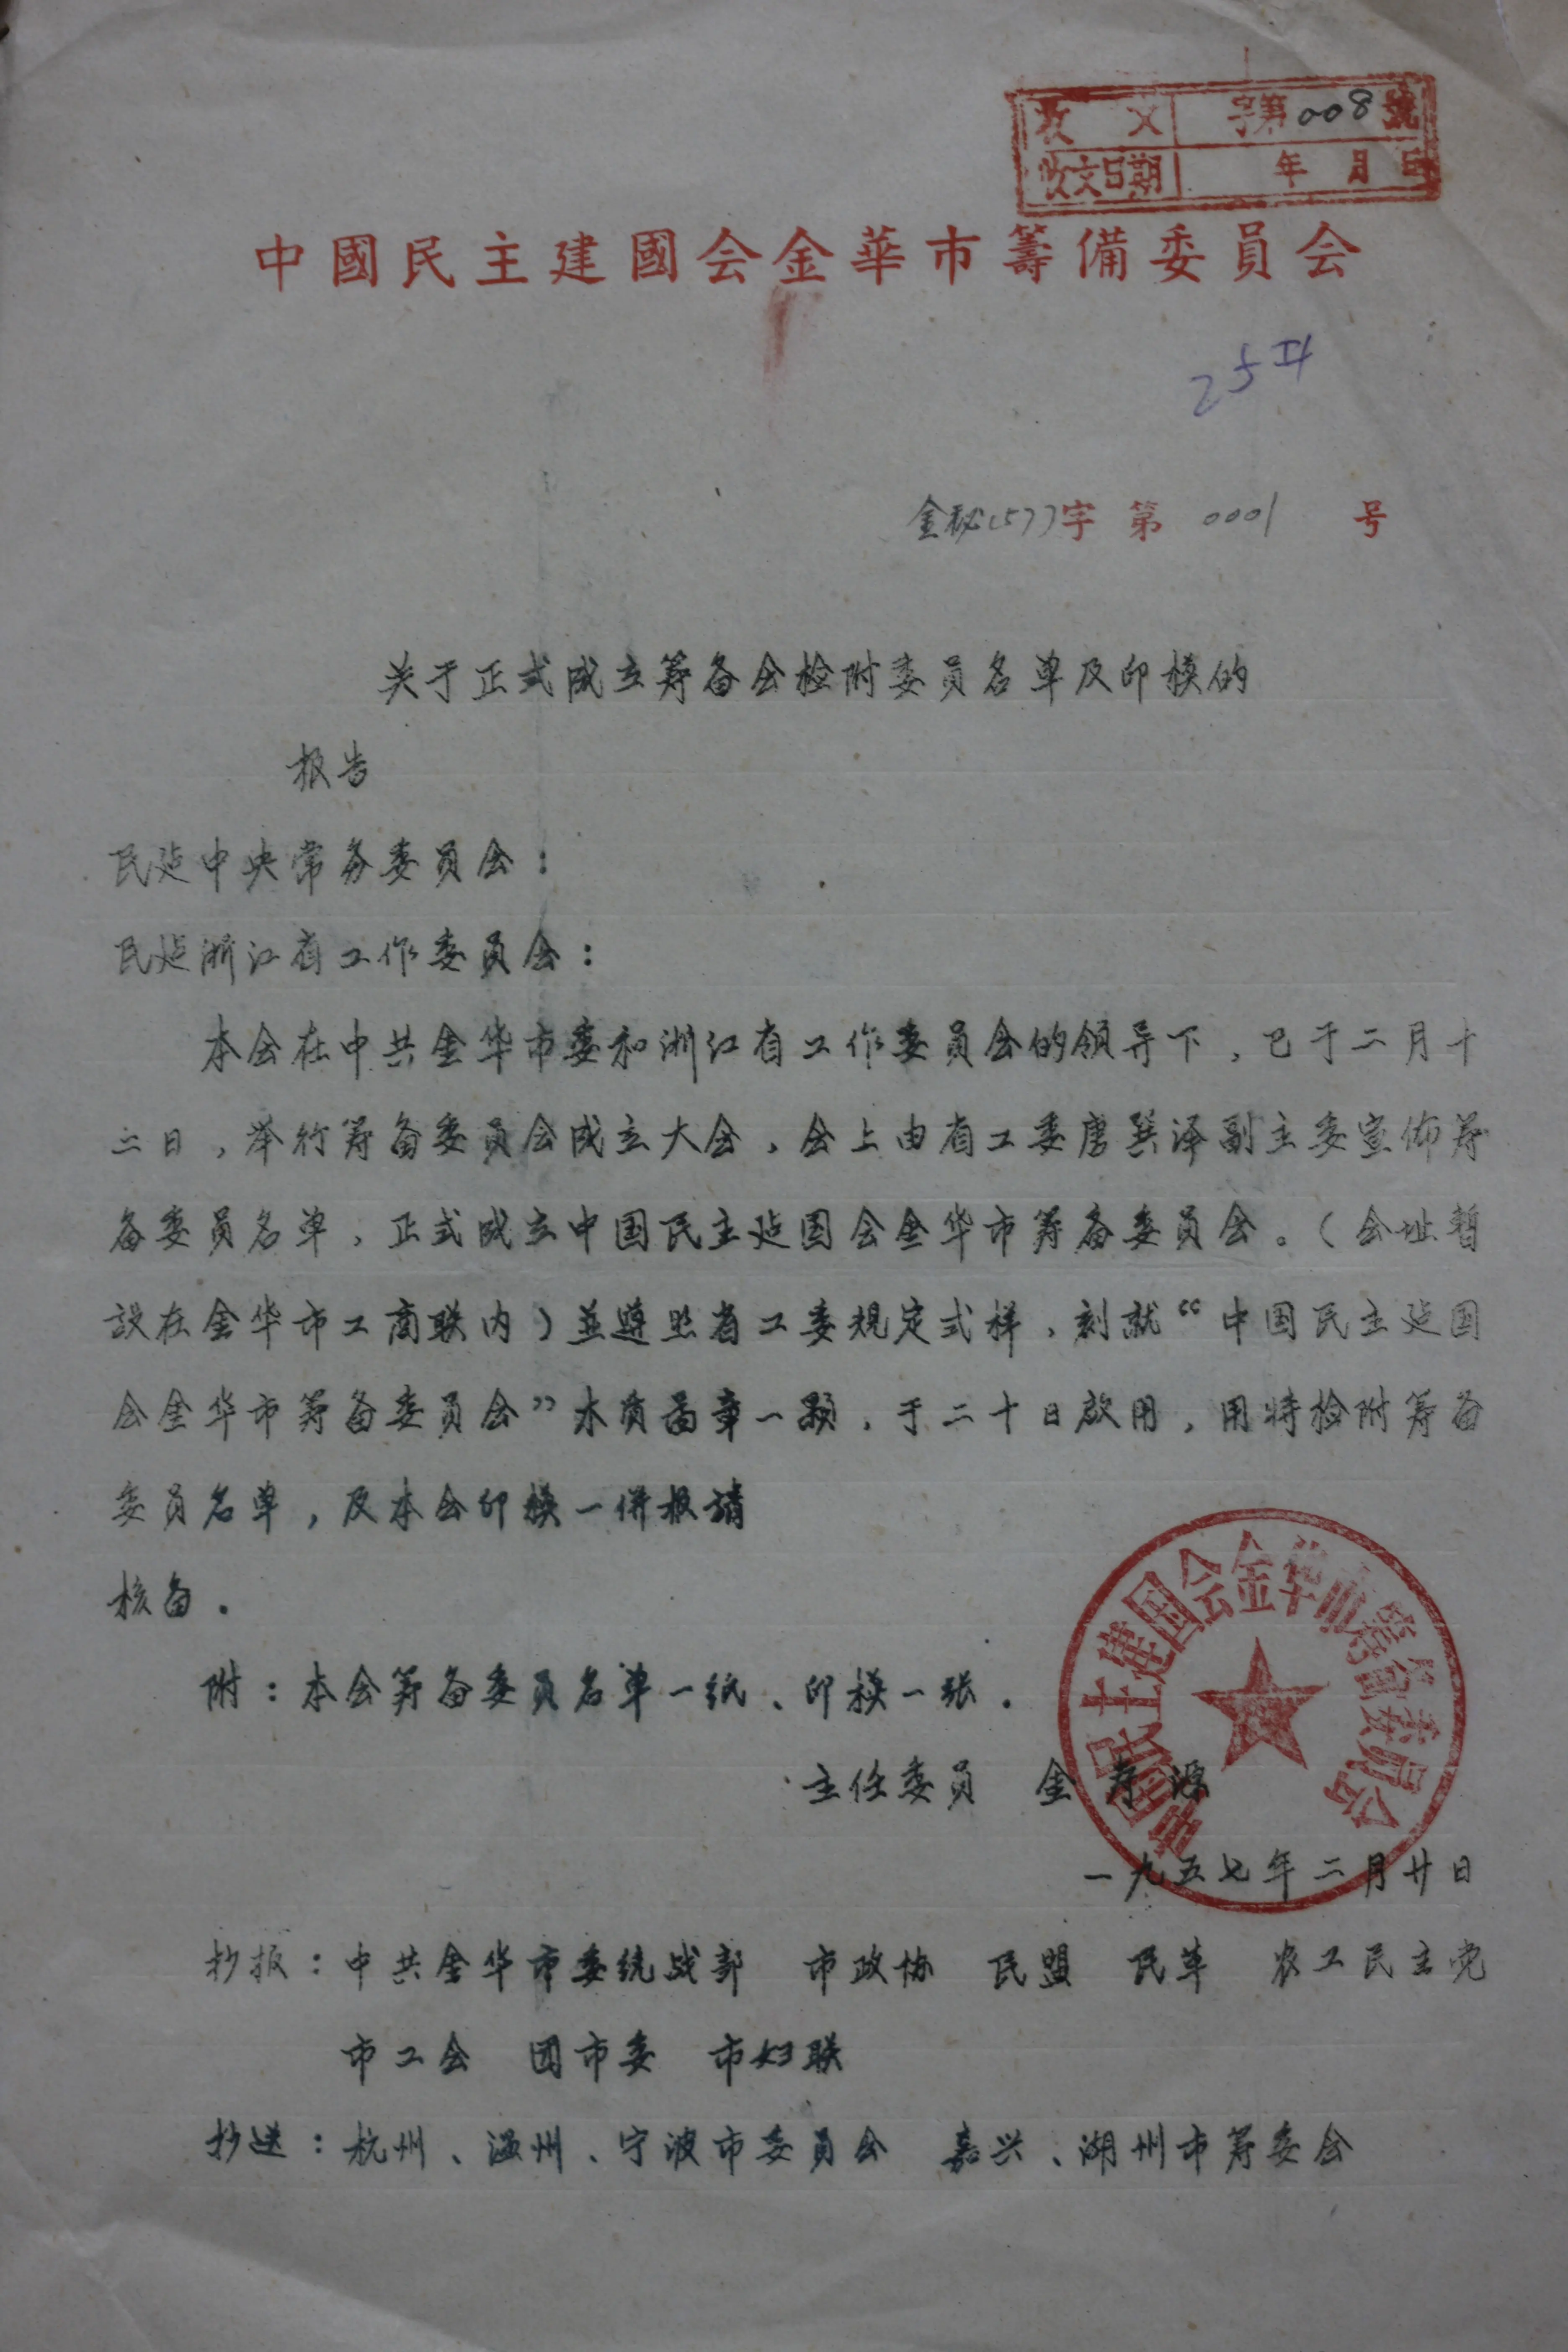 收 文 字第008號
收文日期 年 月 日
中國民主建國会金華市籌備委員会
金秘(57)字 第 0001 号
关于正式成立筹备会检附委员名单及印模的
报告
民建中央常务委员会:
民建浙江省工作委员会:
本会在中共金华市委和浙江省工作委员会的领导下,已于二月十
二日,举行筹备委员会成立大会,会上由省工委唐巽泽副主委宣佈筹
备委员名单,正式成立中国民主建国会金华市筹备委员会。(会址暂
設在金华市工商联内)並遵照省工委規定式样,刻就“中国民主建国
会金华市筹备委员会”木质啚章一顆,于二十日啟用,用特检附筹备
委员名单,及本会印模一併报請
核备.
附:本会筹备委员名单一纸、印模一张.
中国民主建国会金华市筹备委员会
主任委员 金寿源
一九五七年二月廿日
抄报:中共金华市委統战部 市政协 民盟 民革 农工民主党
市工会 团市委 市妇联
抄送:杭州、温州、宁波市委员会 嘉兴、湖州市筹委会